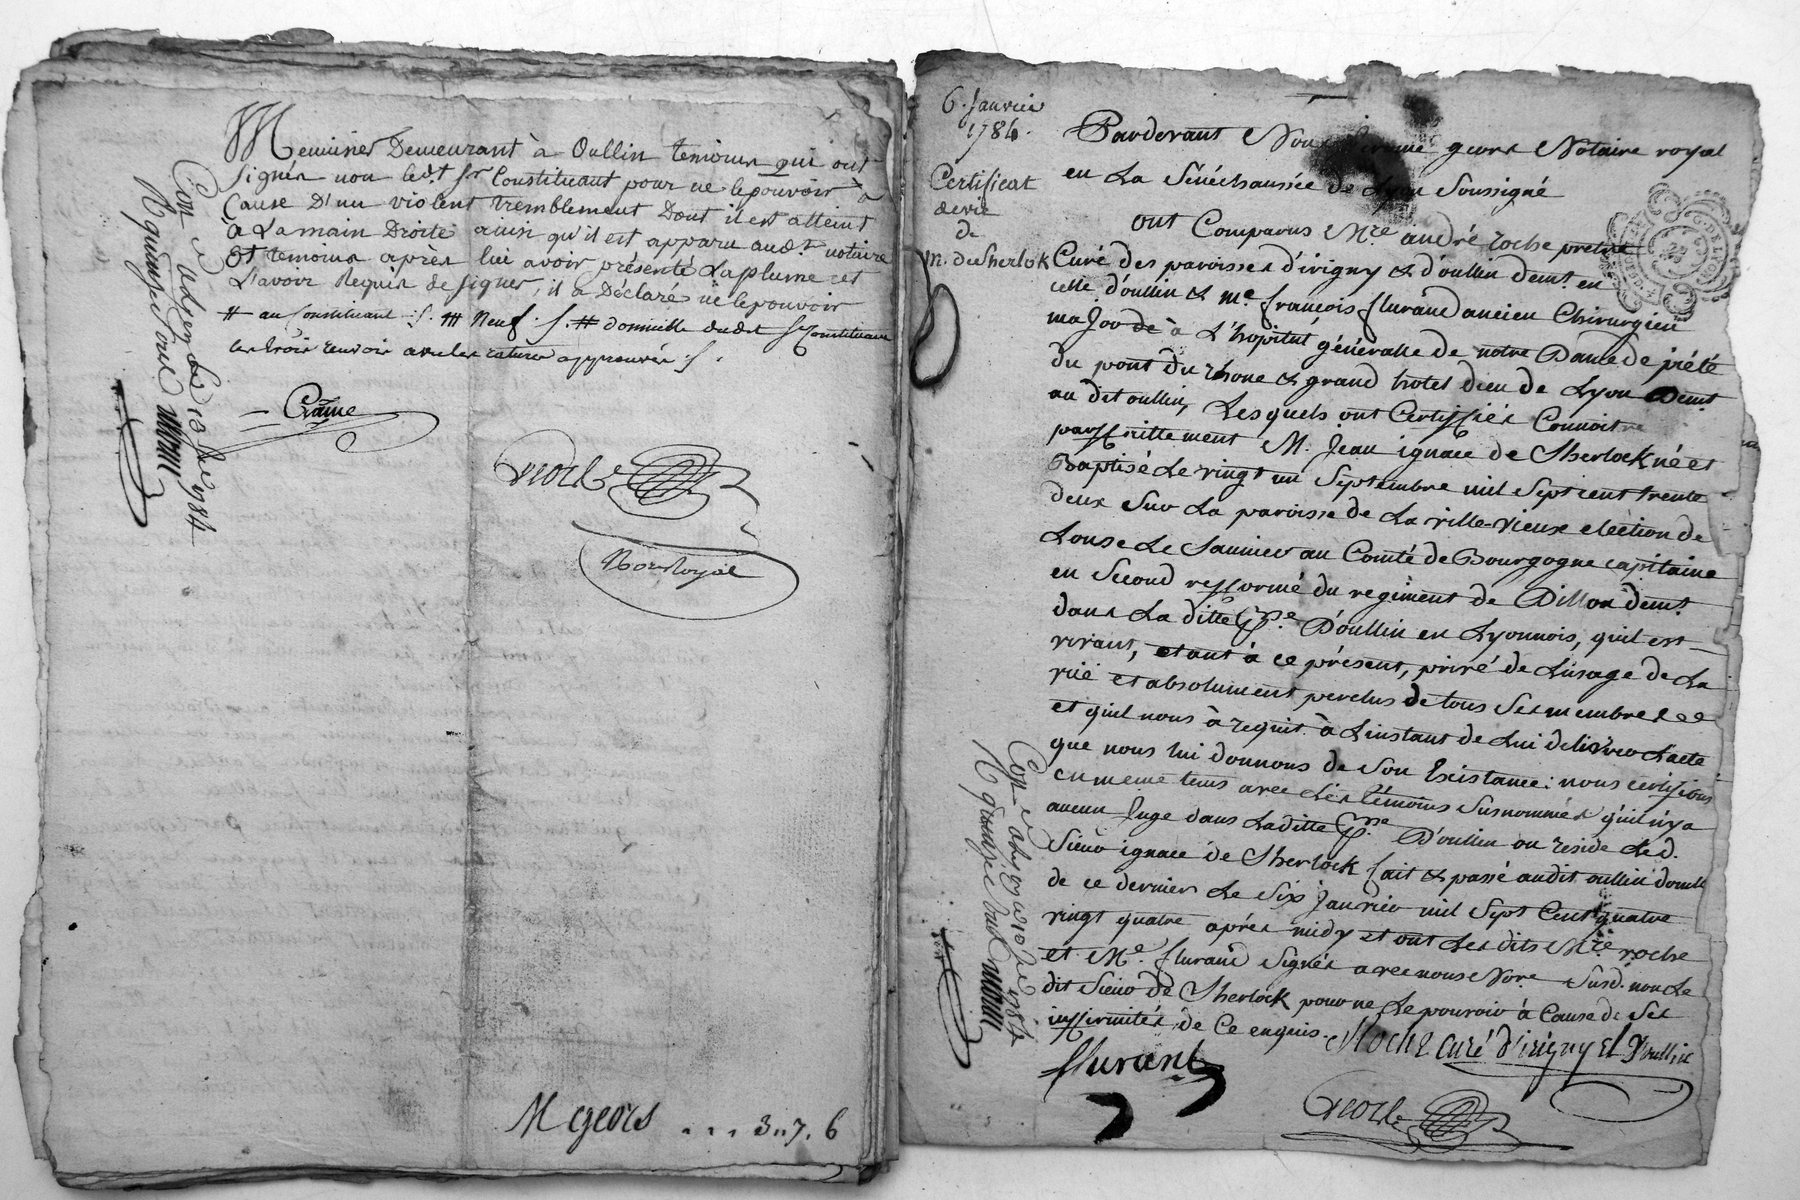 Menuiser Demeurant à Oullin temoins qui ont
signés non led.t Sr Constituant pour ne le pouvoir à
Cause D'un violent tremblement Dont il est atteint
à La main Droite ainsi qu'il est apparu aud.t notaire
Et temoins après lui avoir présenté La plume et
L'avoir Requis de signer, il a Déclaré ne le pouvoir
# au Constituant ./. ## Neuf ./. # domicille dudit Sr Constituant
les trois renvois avec les ratures approuvés ./.
Crâme
Not. Royal
Con. à Lyon le 13 Jer 1784
R quinze sous
M geors ... 3..7. 6
6. Janvier
1784.
Certificat
de vie
de
M. de Sherlok
Pardevant Nous geors Notaire royal
en La Sénéchaussée de Lyon Soussigné
ont Comparus M.re andré roche pretre
Curé des paroisses d'irigny & d'oullin dem.t en
celle d'oullin & m.e françois flurand ancien Chirurgien
major de à L'hopital généralle de notre Dame de piété
du pont du rhone & grand hotel dieu de Lyon Dem.t
au dit oullin, Lesquels ont Certiffiés Connoitre
parffaittement M. Jean ignace de Sherlock né et
Baptisé Le vingt un Septembre mil Sept cent trente
deux Sur La paroisse de La ville-vieux election de
Lonse Le Saunier au Comté de Bourgogne capitaine
en Second refformé du regiment de Dillon dem.t
dans La ditte P.sse D'oullin en Lyonnois, quil est
vivant, etant à ce présent, privé de L'usage de La
vüe et absolument perclus de tous Ses membres
et quil nous à requit à L'instant de Lui delivrer L'acte
que nous lui donnons de Son Existance: nous certifions
en meme tems avec Les témoins Susnommés qu'il ny a
aucun Juge dans Laditte P.sse D'oullin ou reside Led.
Sieur ignace de Sherlock fait & passé audit oullin domile
de ce dernier Le Six Janvier mil Sept Cent quatre
vingt quatre après midy et ont Les dits M.re roche
et M.e flurand Signés avec nous Nore. Susd. non Le
dit Sieur de Sherlock pour ne Le pouvoir à Cause de Ses
inffirmités de Ce enquis.
Roche curé d'irigny et d'oullin
flurant
Con. à Lyon le 13 Jer 1784
R quinze sous